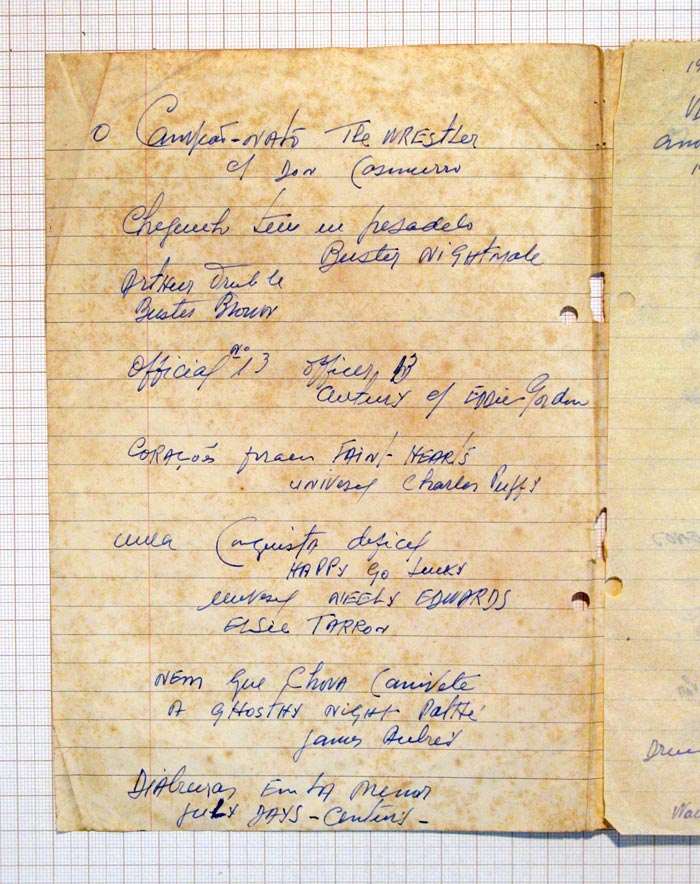 O Campeão-NATO THE WRESTler
c/ DON Casmurro
Cheguinho tem um pesadelo
BUSTER NIGHTMALE
ARTHUR TruBLE
Buster Brown
Official nº 13 officer 13
Century c/ EDDIE Gordon
CORAÇÕES fracos FAINT HEARTS
UNIVERSAL Charles Puffy
uma Conquista dificil
HAPPY GO LUCKY
Universal NEELY EDWARDS
ELSIE TARRON
NEM Que Chova Canivete
A GHOSTHY NIGHT Pathé
James Aubrey
Diabruras Em LA Menor
JULY DAYS - Century -
19
and